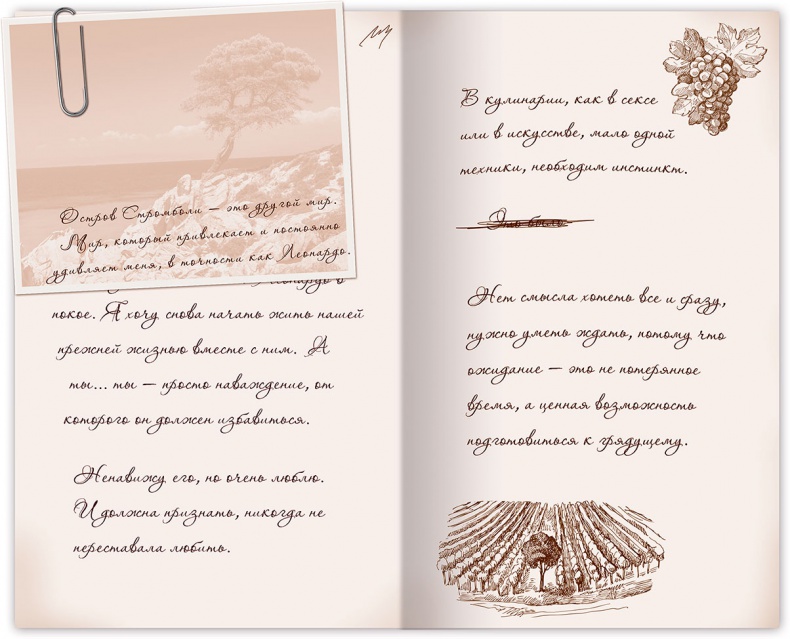 Остров Стромболи — это другой мир.
Мир, который привлекает и постоянно
удивляет меня, в точности как Леонардо.
Леонардо в
покое. Я хочу снова начать жить нашей
прежней жизнью вместе с ним. А
ты... ты — просто наваждение, от
которого он должен избавиться.
Ненавижу его, но очень люблю.
И должна признать, никогда не
переставала любить.
В кулинарии, как в сексе
или в искусстве, мало одной
техники, необходим инстинкт.
Это было
Нет смысла хотеть все и сразу,
нужно уметь ждать, потому что
ожидание — это не потерянное
время, а ценная возможность
подготовиться к грядущему.